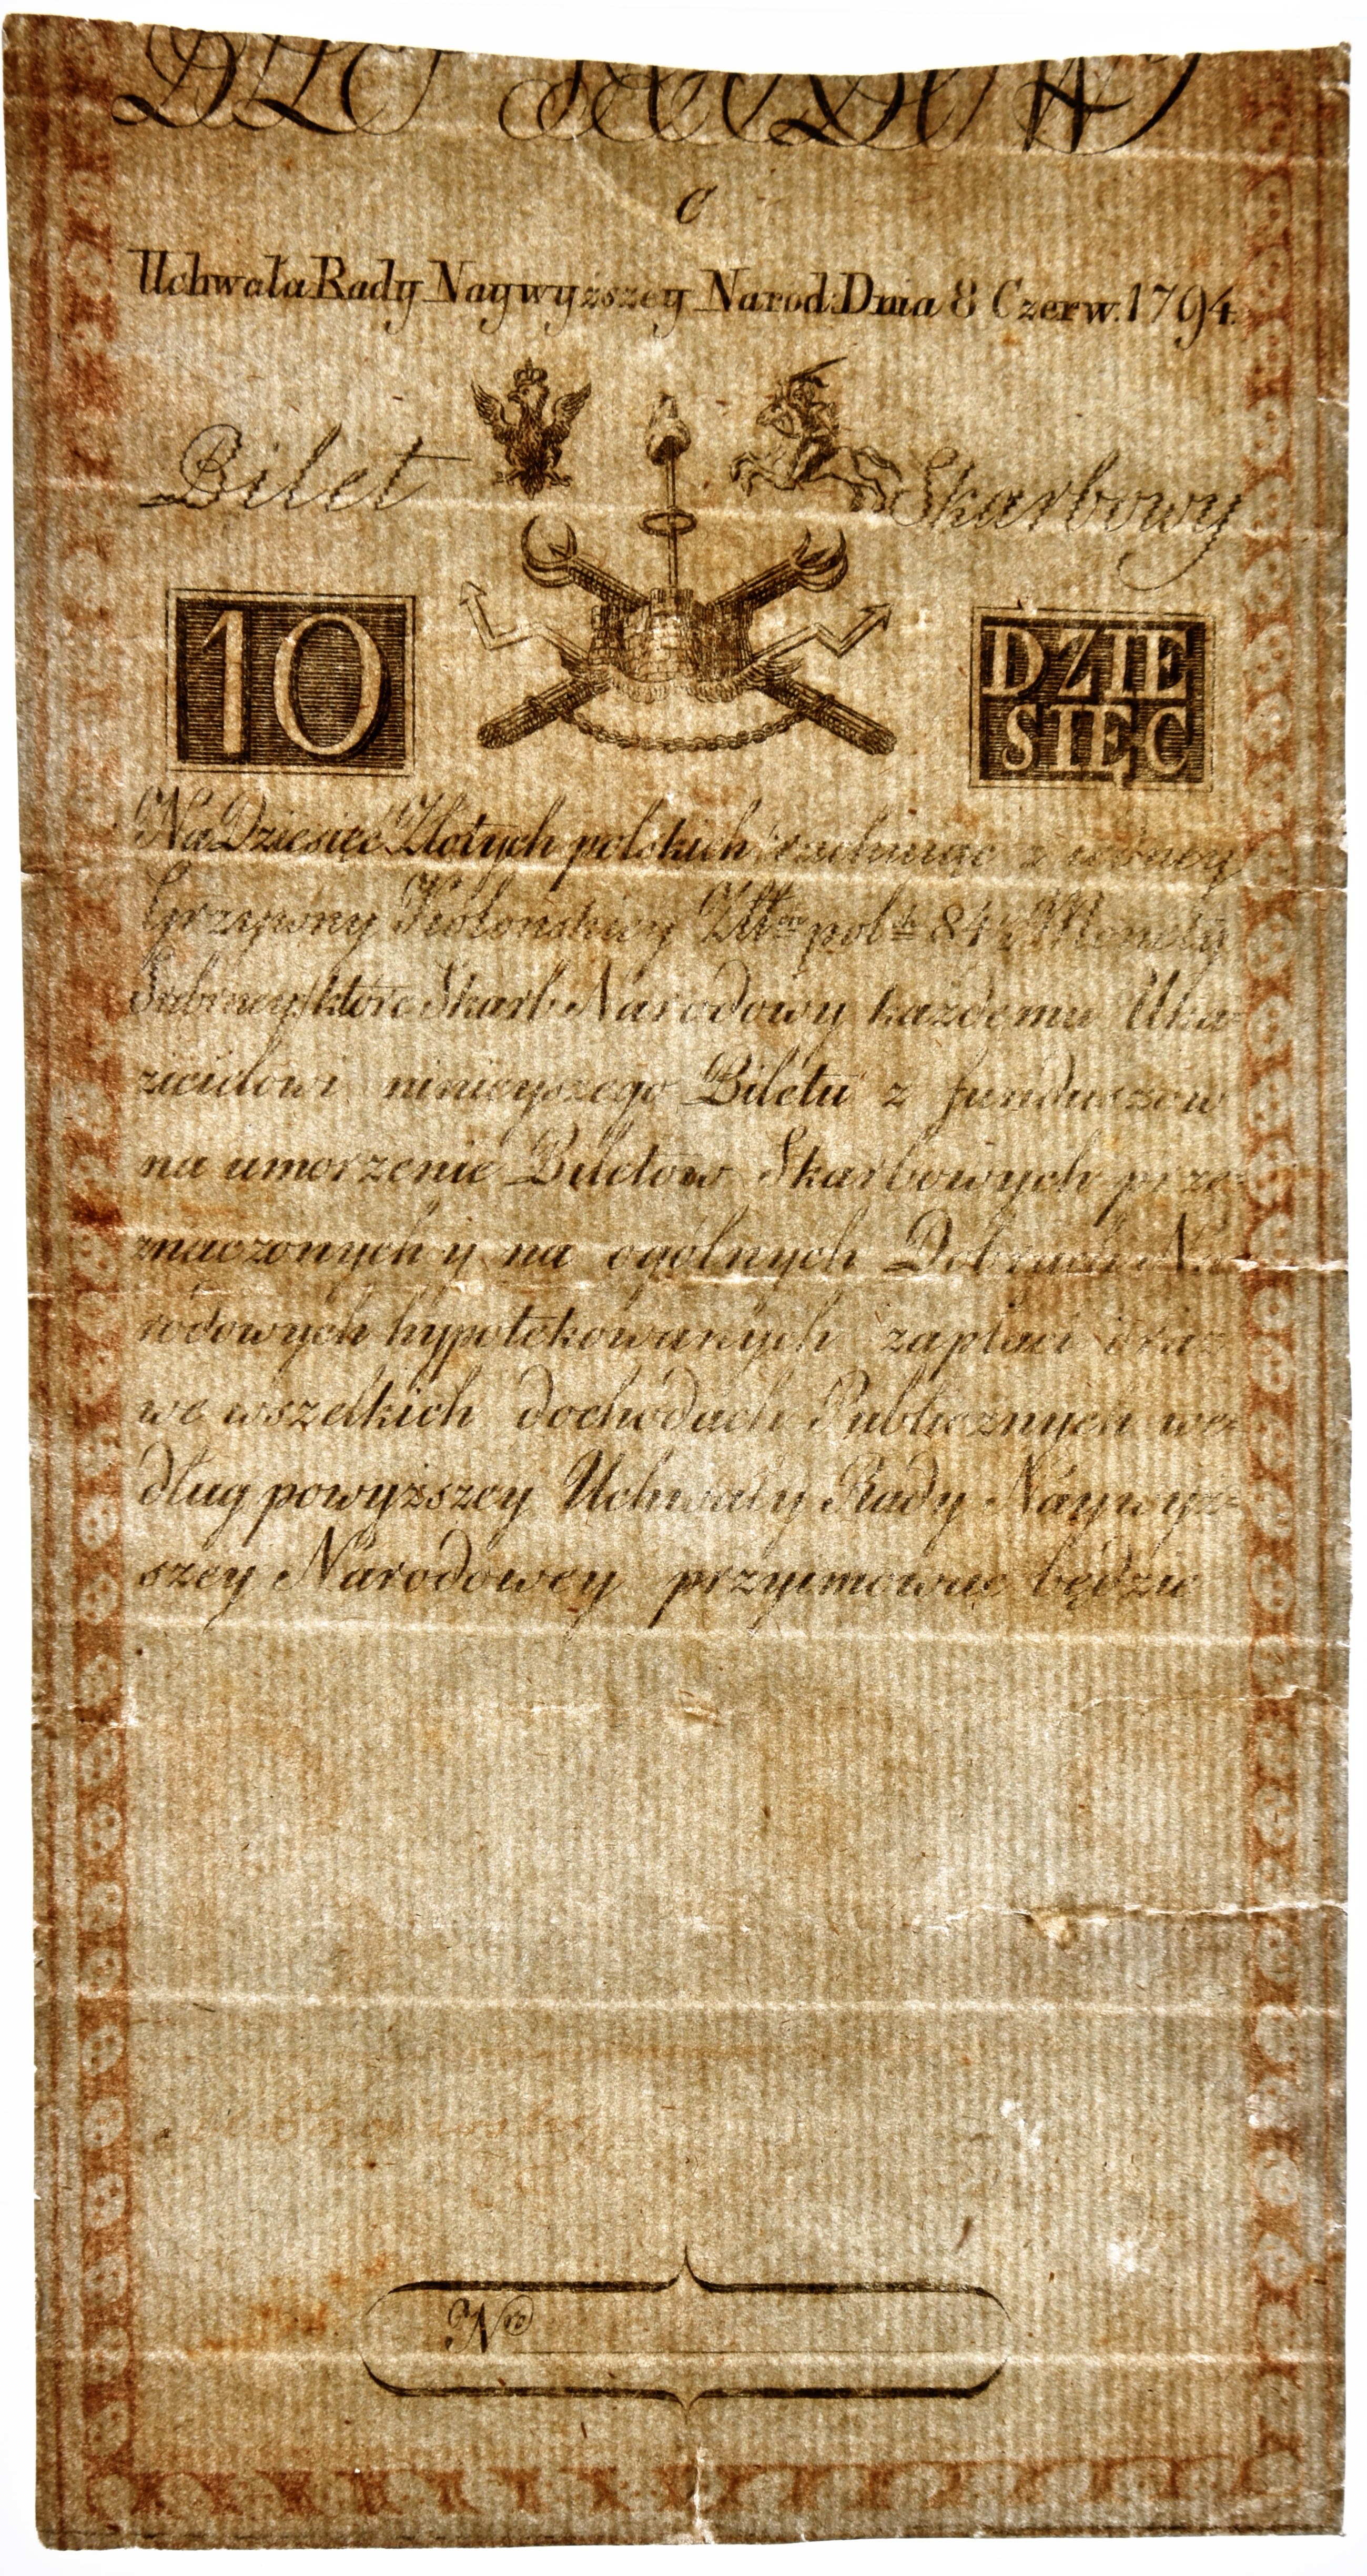 C
Uchwała Rady Naywyższey Narod: Dnia 8 Czerw. 1794.
Bilet Skarbowy
10 DZIE
SIĘC
Na Dziesięć Złotych polskich rachuiąc z
Grzywny Kolońskiey Złtch pol. 84 ½ Monety
Srebrney, które Skarb Narodowy każdemu Uka=
zicielowi ninieyszego Biletu z funduszów
na umorzenie Biletow Skarbowych prze=
znaczonych y na ogólnych Dobrach Na=
rodowych hypotekowanych zapłaci oraz
we wszelkich dochodach Publicznych we=
dług powyższey Uchwały Rady Náywyż=
szey Narodowey przyimować będzie
Nro